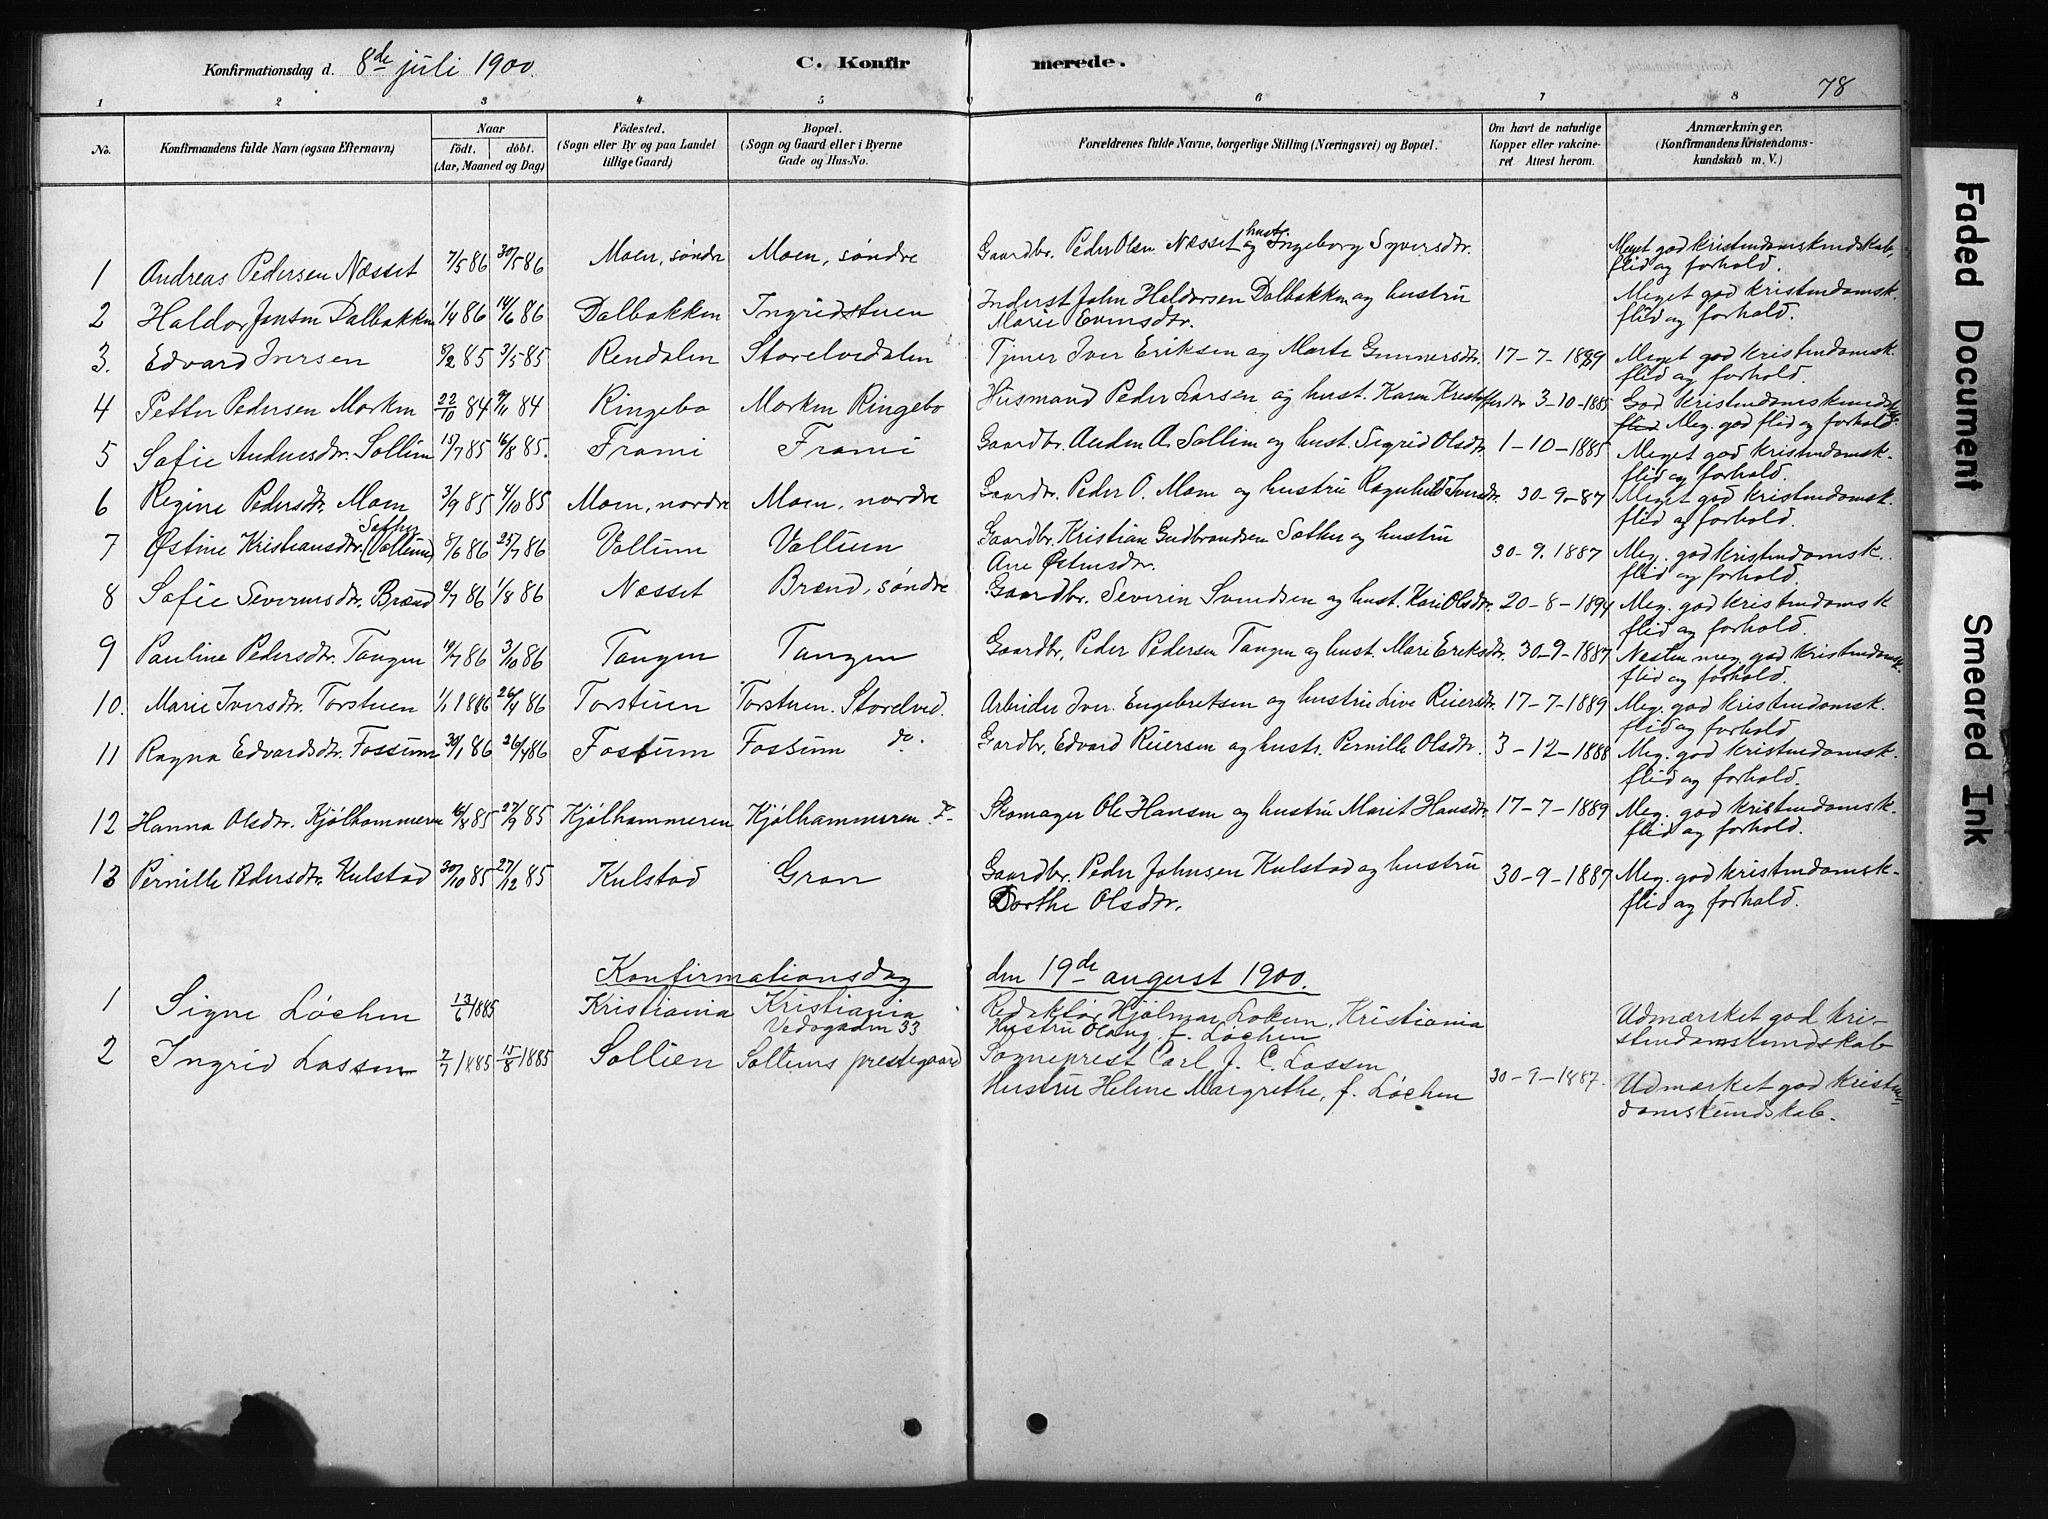 Konfirmationsdag d. 8de juli 1900.
C. Konfirmerede.
78
1 2 3 4 5 6 7 8
No.
Konfirmandens fulde Navn (ogsaa Efternavn)
Naar
födt. döbt.
(Aar, Maaned og Dag)
Födested.
(Sogn eller By og paa Landet
tillige Gaard)
Bopæl.
(Sogn og Gaard eller i Byerne
Gade og Hus-No.
Forældrenes fulde Navne, borgerlige Stilling (Næringsvei) og Bopæl.
Om havt de naturlige
Kopper eller vakcine-
ret Attest herom.
Anmærkninger.
(Konfirmandens Kristendoms-
kundskab m. V.)
1 Andreas Pedersen Næsset 7/5 86 30/5 86 Moen, søndre Moen, søndre Gaardbr. Peder Olsen Næsset og hustr. Ingeborg Syversdtr. Meget god kristendomskundskab,
flid og forhold.
2 Haldor Jonsen Dalbakken 1/4 86 14/6 86 Dalbakken Ingridstuen Inderst John Haldorsen Dalbakken og hustru Meget god kristendomsk.
Marie Evensdtr. flid og forhold.
3. Edvard Iversen 8/2 85 3/5 85 Rendalen Storelvedalen Tjener Iver Eriksen og Marte Gunnersdtr. 17-7-1889 Meget god kristendomsk.
flid og forhold.
4 Petter Pedersen Morken 22/10 84 9/11 84 Ringebo Morken Ringebo Husmand Peder Larsen og hust. Karen Kristoffersdtr 3-10-1885 God Kristendomskundskab
flid Meg. god flid og forhold.
5 Sofie Andersdtr. Sollien 15/7 85 16/8 85. Frami Frami Gaardbr. Anders A. Sollien og hust. Sigrid Olsdtr 1-10-1885 Meget god kristendomsk-
flid og forhold.
6 Regine Pedersdtr. Moen 3/9 85 4/10 85 Moen, nordre Moen, nordre Gaardbr. Peder O. Moen og hustru Ragnhild Iversdtr. 30-9-87 Meget god kristendomsk.
flid og forhold.
7 Østine Kristiansdtr. Sæther (Vollum) 8/6 86 25/7 86 Vollum Vollum Gaardbr. Kristian Gudbrandsen Sæther og hustru 30-9.1887 Meg. god kristendomsk.
Ane Østensdtr. flid og forhold.
8 Sofie Severinsdtr. Brænd 9/7 86 1/8 86 Næsset Brænd, søndre Gaardbr. Severin Svendsen og hust. Kari Olsdtr. 20-8-1894 Meg. god kristendomsk
flid og forhold.
9 Pauline Pedersdtr. Tangen 19/7 86 3/10 86 Tangen Tangen Gaardbr, Peder Pedersen Tangen og hust. Mari Eriksdtr. 30-9-1887 Næsten meg. god kristendomsk.
flid og forhold.
10. Marie Iversdtr. Torstuen 1/1 1886 26/4 86 Torstuen Torstuen. Storelved. Arbeider Iver Engebretsen og hustru Live Reiersdtr. 17-7-1889 Meg. god kristendomsk.
flid og forhold
11 Ragna Edvardsdtr. Fossum 30/1 86 26/4 86 Fossum Fossum do. Gardbr. Edvard Reiersen og hustr. Pernille Olsdtr. 3-12-1888 Meg. god kristendomsk.
flid og forhold.
12 Hanna Olsdtr. Kjølhammeren 16/8 85 27/9 85 Kjølhammeren Kjølhammeren. Skomager Ole Hansen og hustru Marit Hansdtr. 17-7-1889 Meg. god kristendomsk-
flid og forhold.
13 Pernille Pedersdtr. Kulstad 30/10 85 27/12 85 Kulstad Gran Gaardbr. Peder Johnsen Kulstad og hustru 30-9-1887 Meg. god kristendomsk-
Dorthe Olsdtr. flid og forhold.
Konfirmationsdag den 19de august 1900.
1 Signe Løchen 13/6 1885 Kristiania Kristiania Redaktør Hjalmar Løken, Kristiania Udmærket god kri-
Hustru f. Løchen stendomskundskab
2 Ingrid Lassen 2/7 1885 15/8 1885 Sollien Solliens prestegaard Sogneprest Carl J. C. Lassen
Hustru Helene Margrethe, f. Løchen 30-9-1887. Udmærket god kristen-
domskundskab.
Faded Document
Smeared Ink